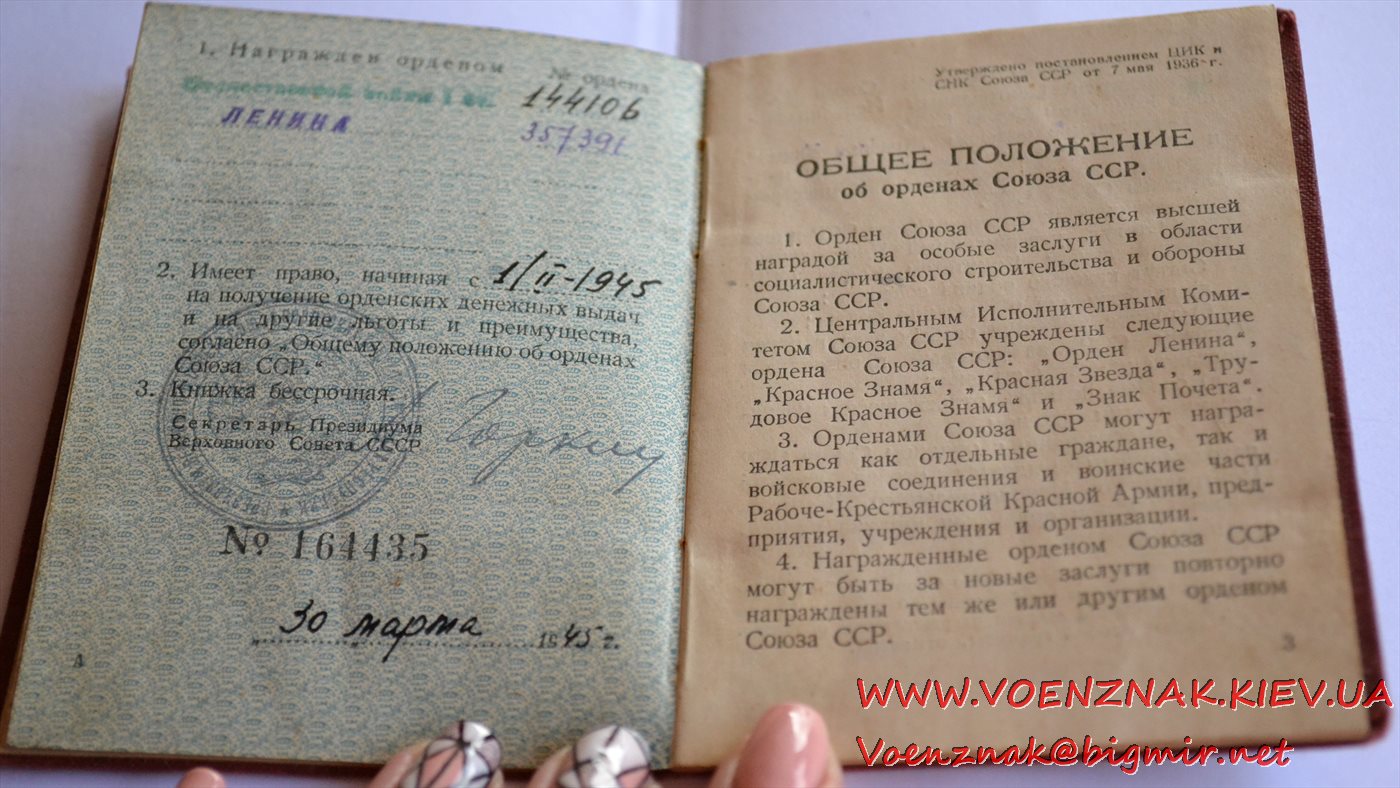 1. Награжден орденом
№ ордена
Отечественной войны I ст.
144106
ЛЕНИНА
357391
2. Имеет право, начиная с 1/II-1945
на получение орденских денежных выдач
и на другие льготы и преимущества,
согласно „Общему положению об орденах
Союза ССР.“
3. Книжка бессрочная.
Секретарь Президиума
Верховного Совета СССР
Горкин
№ 164435
30 марта 1945 г.
А
Утверждено постановлением ЦИК и
СНК Союза ССР от 7 мая 1936 г.
ОБЩЕЕ ПОЛОЖЕНИЕ
об орденах Союза ССР.
1. Орден Союза ССР является высшей
наградой за особые заслуги в области
социалистического строительства и обороны
Союза ССР.
2. Центральным Исполнительным Коми-
тетом Союза ССР учреждены следующие
ордена Союза ССР: „Орден Ленина“,
„Красное Знамя“, „Красная Звезда“, „Тру-
довое Красное Знамя“ и „Знак Почета“.
3. Орденами Союза ССР могут награ-
ждаться как отдельные граждане, так и
войсковые соединения и воинские части
Рабоче-Крестьянской Красной Армии, пред-
приятия, учреждения и организации.
4. Награжденные орденом Союза ССР
могут быть за новые заслуги повторно
награждены тем же или другим орденом
Союза ССР.
3
WWW.VOENZNAK.KIEV.UA
Voenznak@bigmir.net